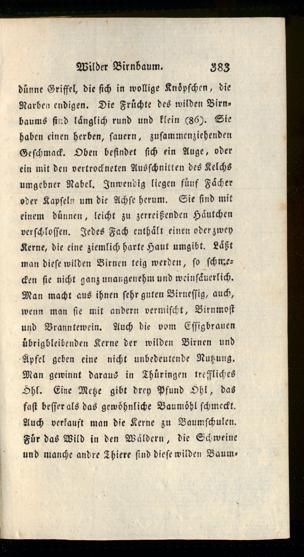 Wilder Birnbaum. 383
dünne Griffel, die sich in wollige Knöpfchen, die
Narben endigen. Die Früchte des wilden Birn-
baums sind länglich rund und klein (86). Sie
haben einen herben, sauern, zusammenziehenden
Geschmack. Oben befindet sich ein Auge, oder
ein mit den vertrockneten Ausschnitten des Kelchs
umgebner Nabel. Inwendig liegen fünf Fächer
oder Kapseln um die Achse herum. Sie sind mit
einem dünnen, leicht zu zerreißenden Häutchen
verschlossen. Jedes Fach enthält einen oder zwey
Kerne, die eine ziemlich harte Haut umgibt. Läßt
man diese wilden Birnen teig werden, so schme-
cken sie nicht ganz unangenehm und weinsäuerlich.
Man macht aus ihnen sehr guten Birnessig, auch,
wenn man sie mit andern vermischt, Birnmost
und Branntewein. Auch die vom Essigbrauen
übrigbleibenden Kerne der wilden Birnen und
Äpfel geben eine nicht unbedeutende Nutzung.
Man gewinnt daraus in Thüringen treffliches
Öhl. Eine Metze gibt drey Pfund Öhl, das
fast besser als das gewöhnliche Baumöhl schmeckt.
Auch verkauft man die Kerne zu Baumschulen.
Für das Wild in den Wäldern, die Schweine
und manche andre Thiere sind diese wilden Baum-